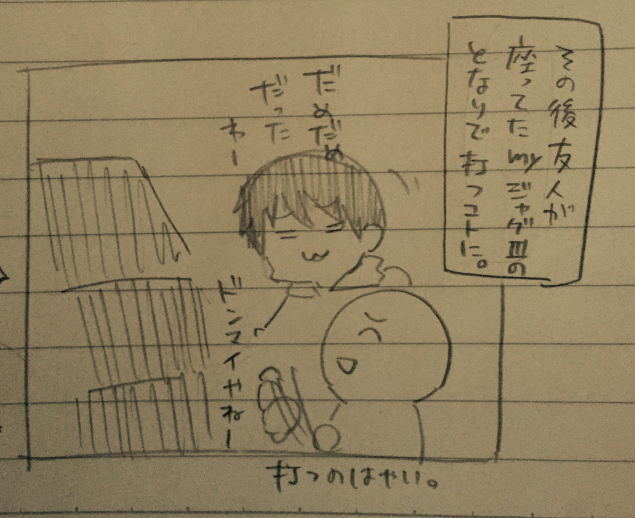 その後友人が
座ってたmyジャグⅢの
となりで打つコトに。
だめだめ
だった
わー
ドンマイやねー
打つのはやい。